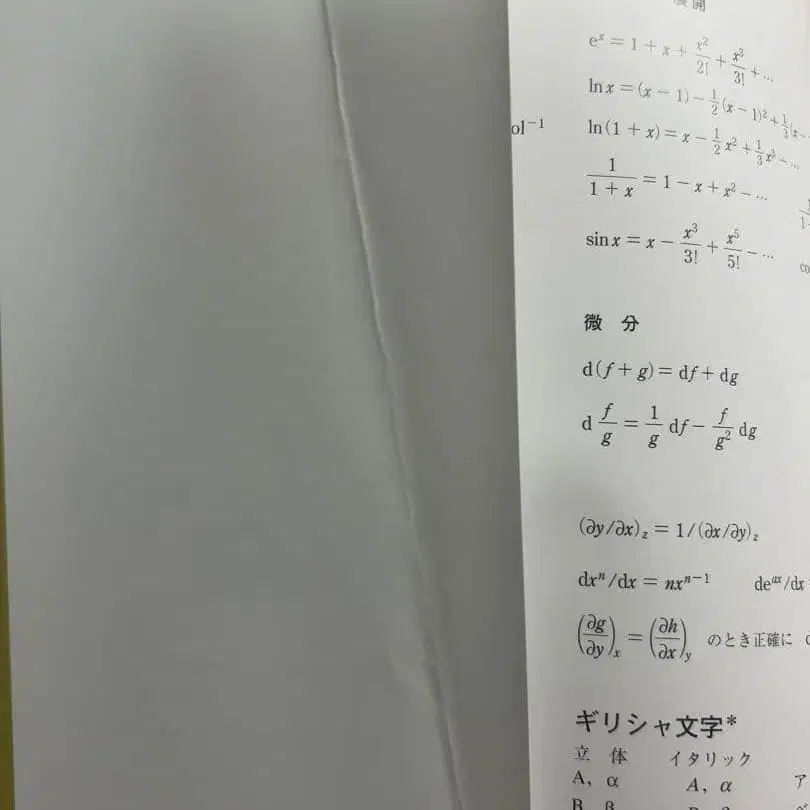 展開
eˣ = 1 + x + x²/2! + x³/3! + …
ln x = (x − 1) − 1/2 (x − 1)² + 1/3 (x −
ol⁻¹
ln(1 + x) = x − 1/2 x² + 1/3 x³ − …
1/(1 + x) = 1 − x + x² − …
sin x = x − x³/3! + x⁵/5! − …
微 分
d(f + g) = df + dg
d f/g = 1/g df − f/g² dg
(∂y/∂x)z = 1/(∂x/∂y)z
dxⁿ/dx = nxⁿ⁻¹ deᵃˣ/dx
(∂g/∂y)x = (∂h/∂x)y のとき正確に
ギリシャ文字*
立 体 イタリック
A, α A, α ア
B, β